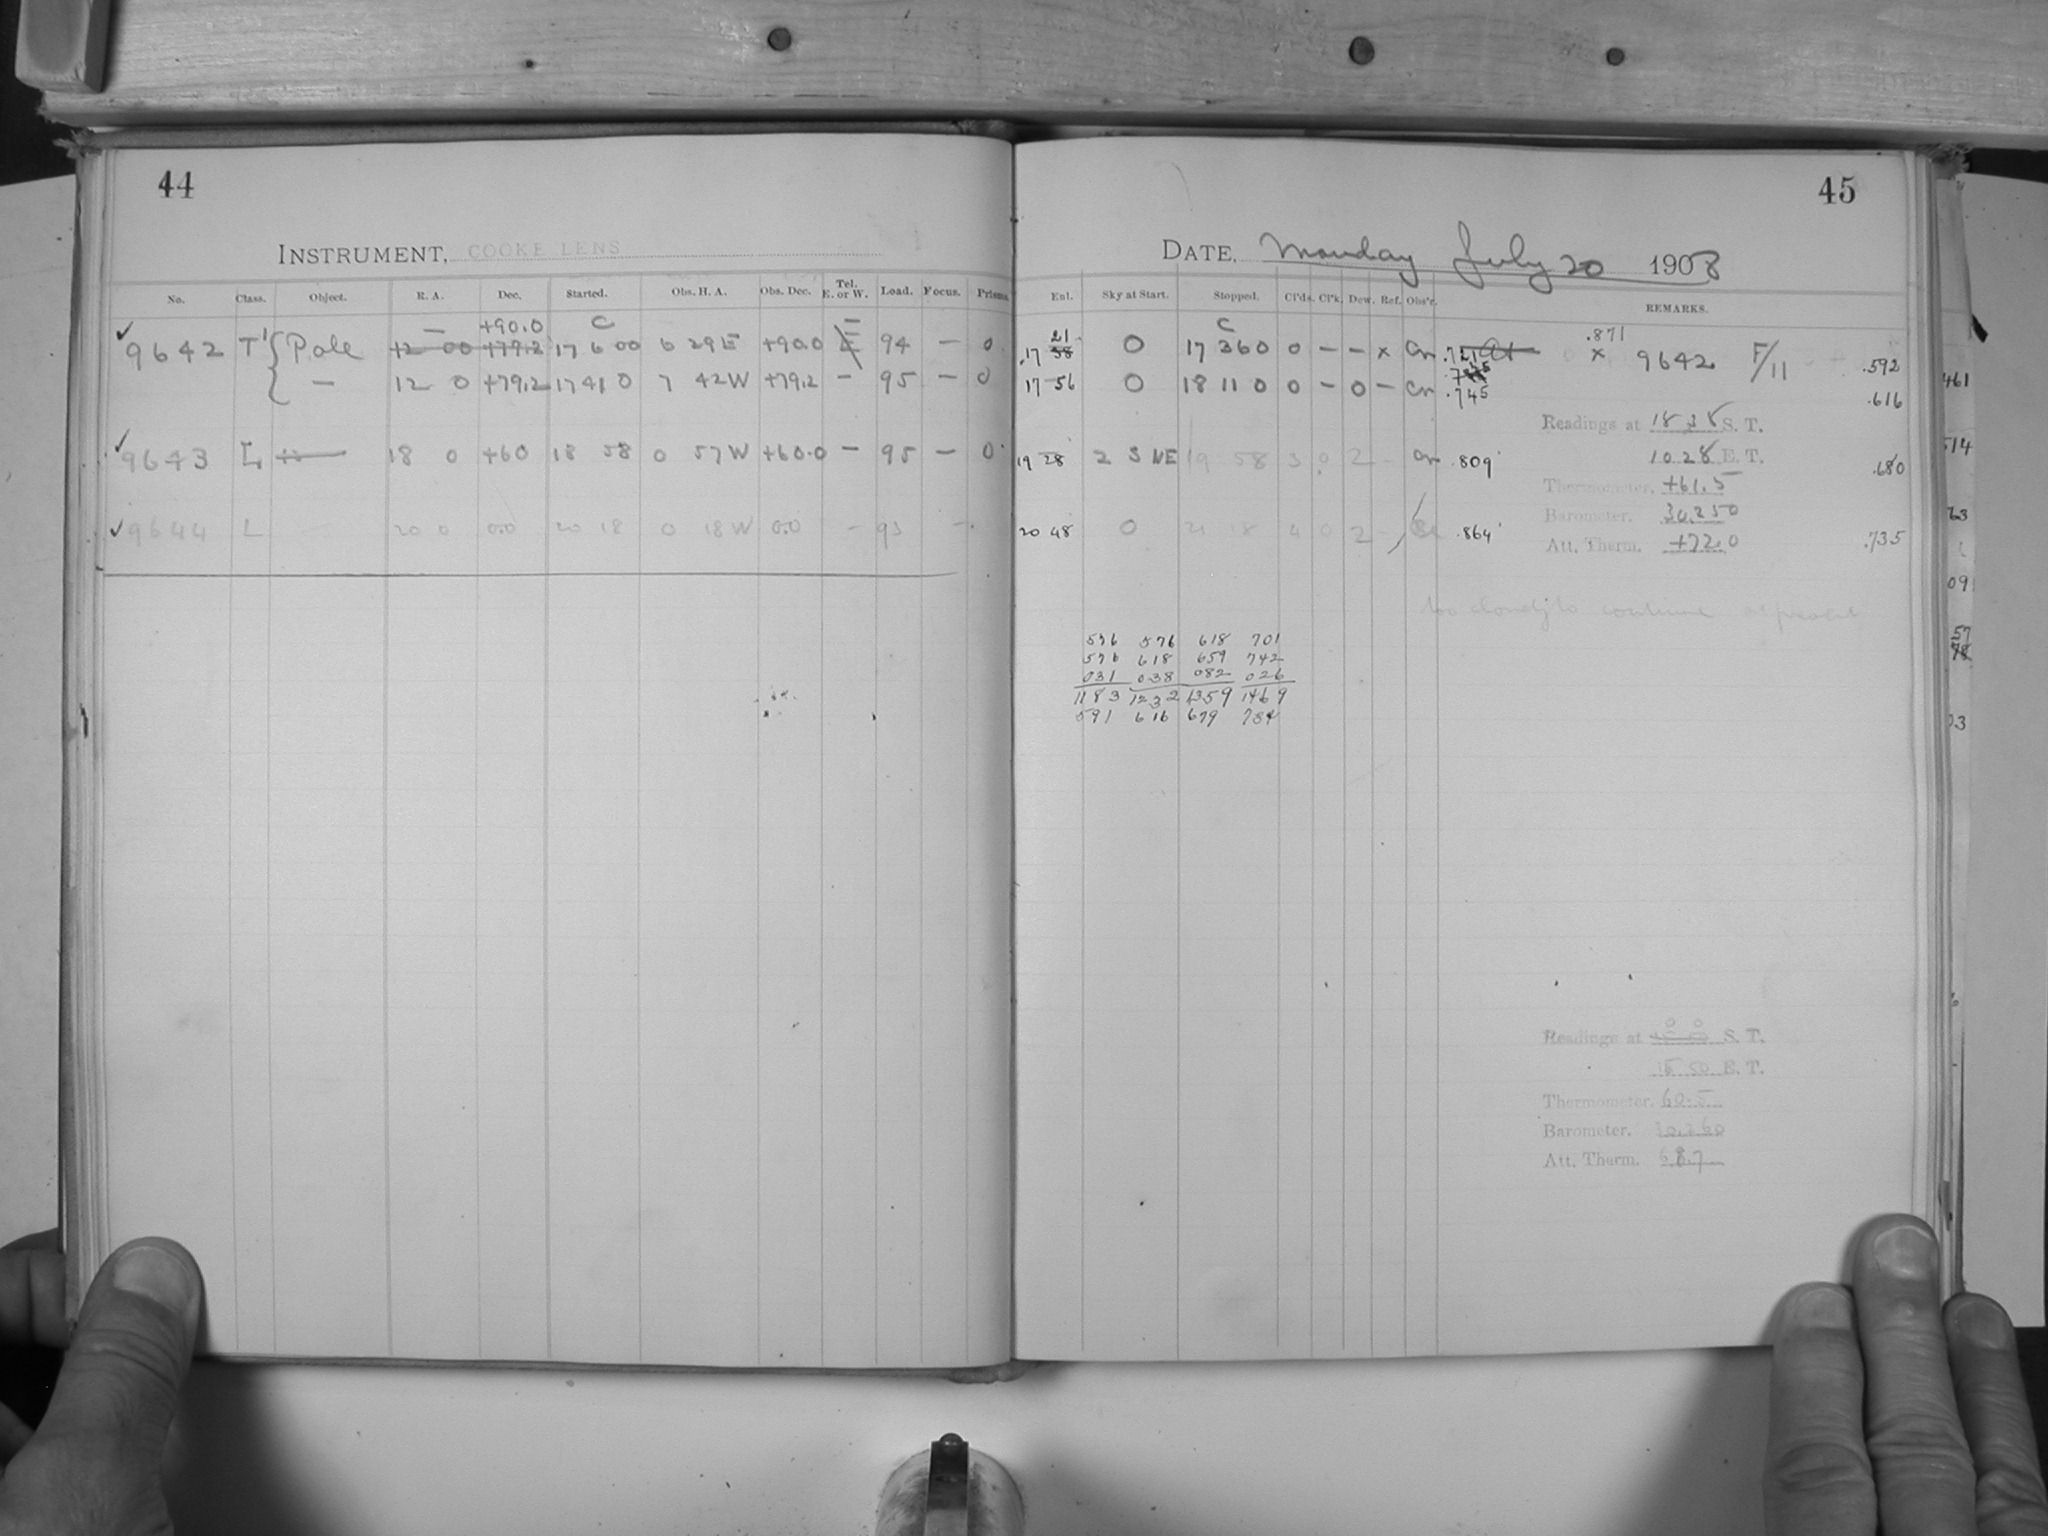 44
INSTRUMENT, COOKE LENS
No. Class. Object. R. A. Dec. Started. Obs. H. A. Obs. Dec. Tel. E. or W. Load. Focus. Prisms
— +90.0 C E
9642 T' Pole 12 00 +79.2 17 6 00 6 29 E +90.0 E 94 — 0
— 12 0 +79.2 17 41 0 7 42 W +79.2 — 95 — 0
9643 L 18 0 +60 18 58 0 57 W +60.0 — 95 — 0
9644 L 20 0 0.0 20 18 0 18 W 0.0 — 95 —
45
DATE, Monday July 20 1908
Enl. Sky at Start. Stopped. Cl'ds. Cl'k. Dew. Ref. Obs'r. REMARKS.
21 C .871
.17 38 0 17 36 0 0 — — x Cn .721 x 9642 F/11 .592
17 56 0 18 11 0 0 — 0 — Cn .745 .616
Readings at 18 38 S. T.
19 28 2 S NE 19 58 3 0 2 - Cn .809 10 28 E. T. .680
Thermometer. +61.5
Barometer. 30.250
20 48 0 21 18 4 0 2 - .864 Att. Therm. +72.0 .735
too cloudy to continue at present
576 576 618 701
576 618 659 742
031 038 082 026
1183 1232 1359 1469
591 616 679 734
Readings at 0 0 S. T.
15 50 E. T.
Thermometer. 60.5
Barometer. 30.260
Att. Therm. 68.7
461
514
63
091
57
78
03